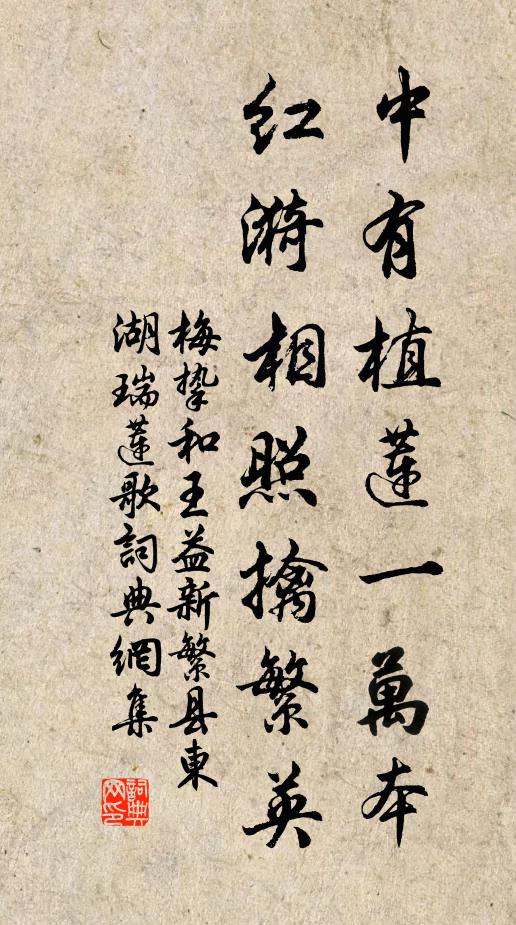 中有植蓮一萬本
红漪相照擒繁英
梅挚和王益新繁县東
湖瑞蓮歌詞典網集
詞典
网印